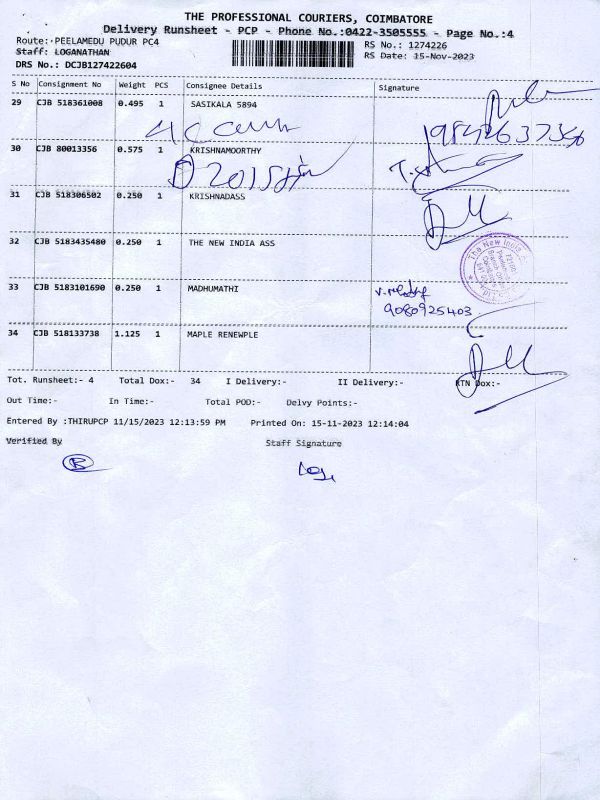 THE PROFESSIONAL COURIERS, COIMBATORE
Delivery Runsheet - PCP - Phone No.:0422-3505555 - Page No.:4
Route:-PEELAMEDU PUDUR PC4
RS No.: 1274226
Staff: LOGANATHAN
RS Date: 15-Nov-2023
DRS No.: DCJB127422604
S No Consignment No Weight PCS Consignee Details Signature
29 CJB 518361008 0.495 1 SASIKALA 5894
30 CJB 80013356 0.575 1 KRISHNAMOORTHY
31 CJB 518306502 0.250 1 KRISHNADASS
32 CJB 5183435480 0.250 1 THE NEW INDIA ASS
The New India
33 CJB 5183101690 0.250 1 MADHUMATHI
9080925403
34 CJB 518133738 1.125 1 MAPLE RENEWPLE
Tot. Runsheet:- 4 Total Dox:- 34 I Delivery:- II Delivery:- RTN Dox:-
Out Time:- In Time:- Total POD:- Delvy Points:-
Entered By :THIRUPCP 11/15/2023 12:13:59 PM Printed On: 15-11-2023 12:14:04
Verified By Staff Signature